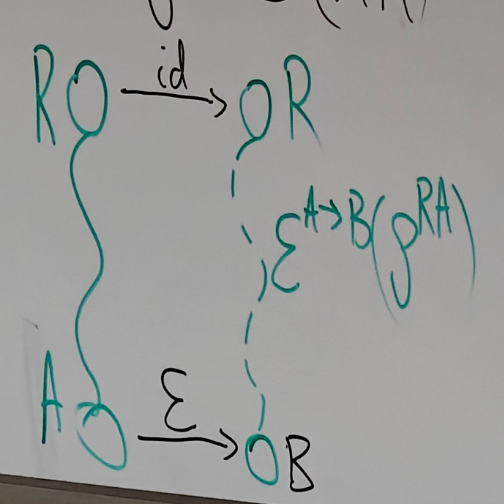 id
R R
ℰ^{A→B}(ρ^{RA})
A ℰ B